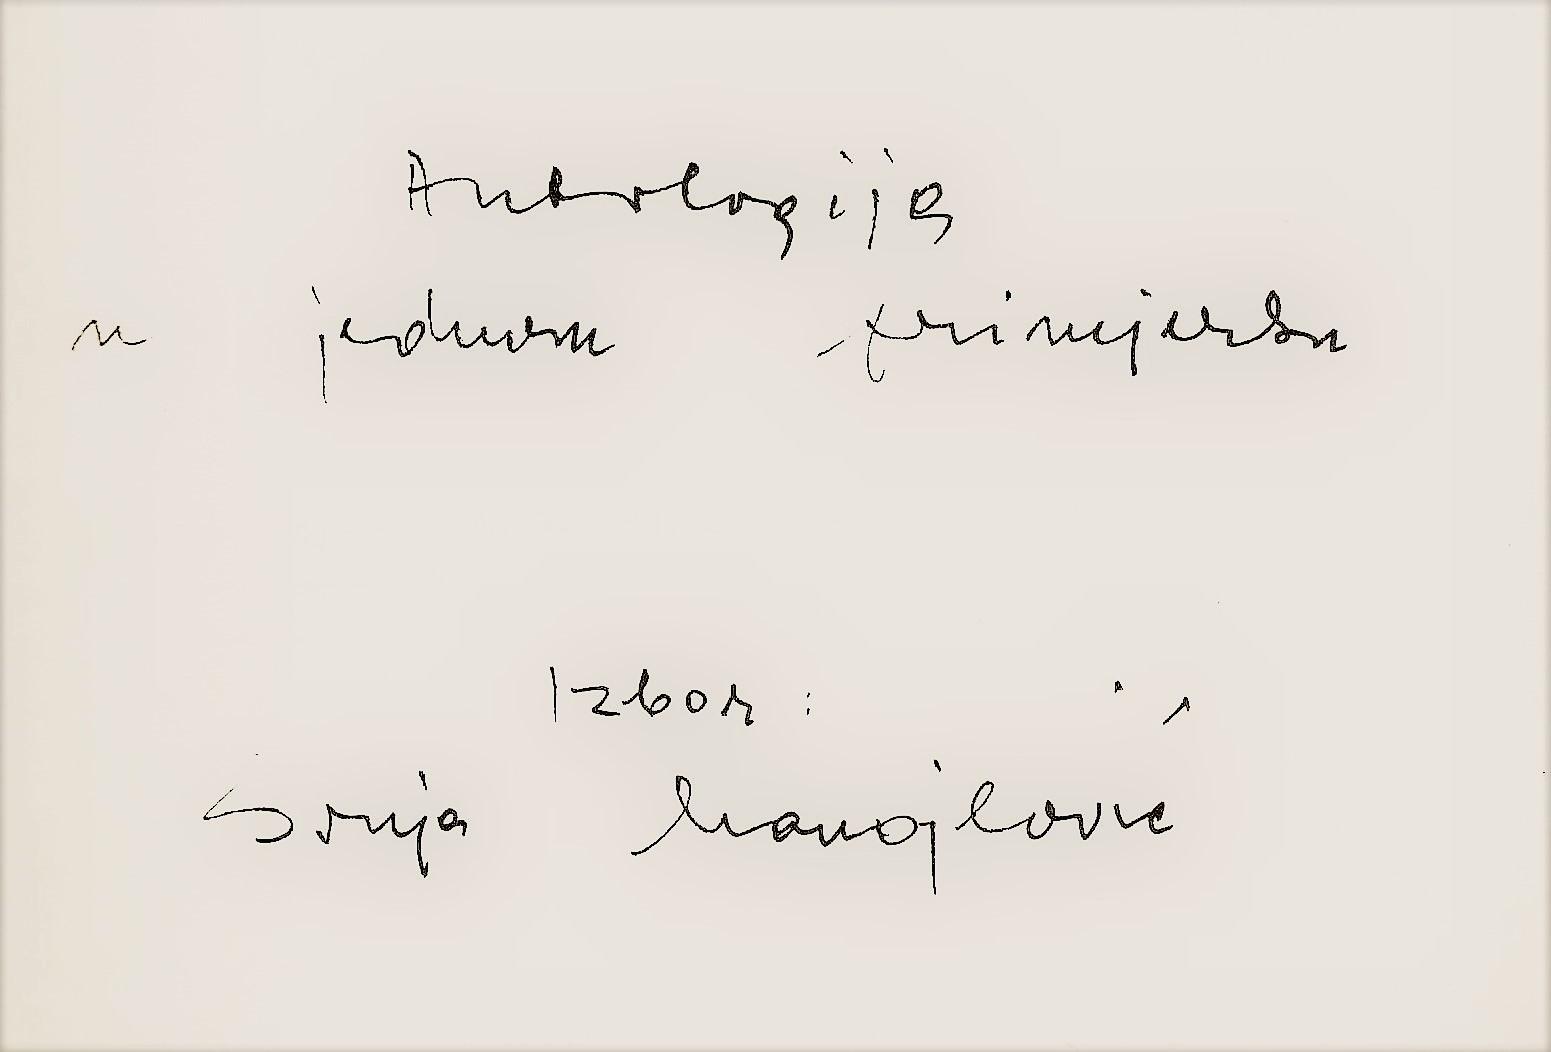 Antologija
u jednom primjerku
Izbor:
Sonja Manojlović